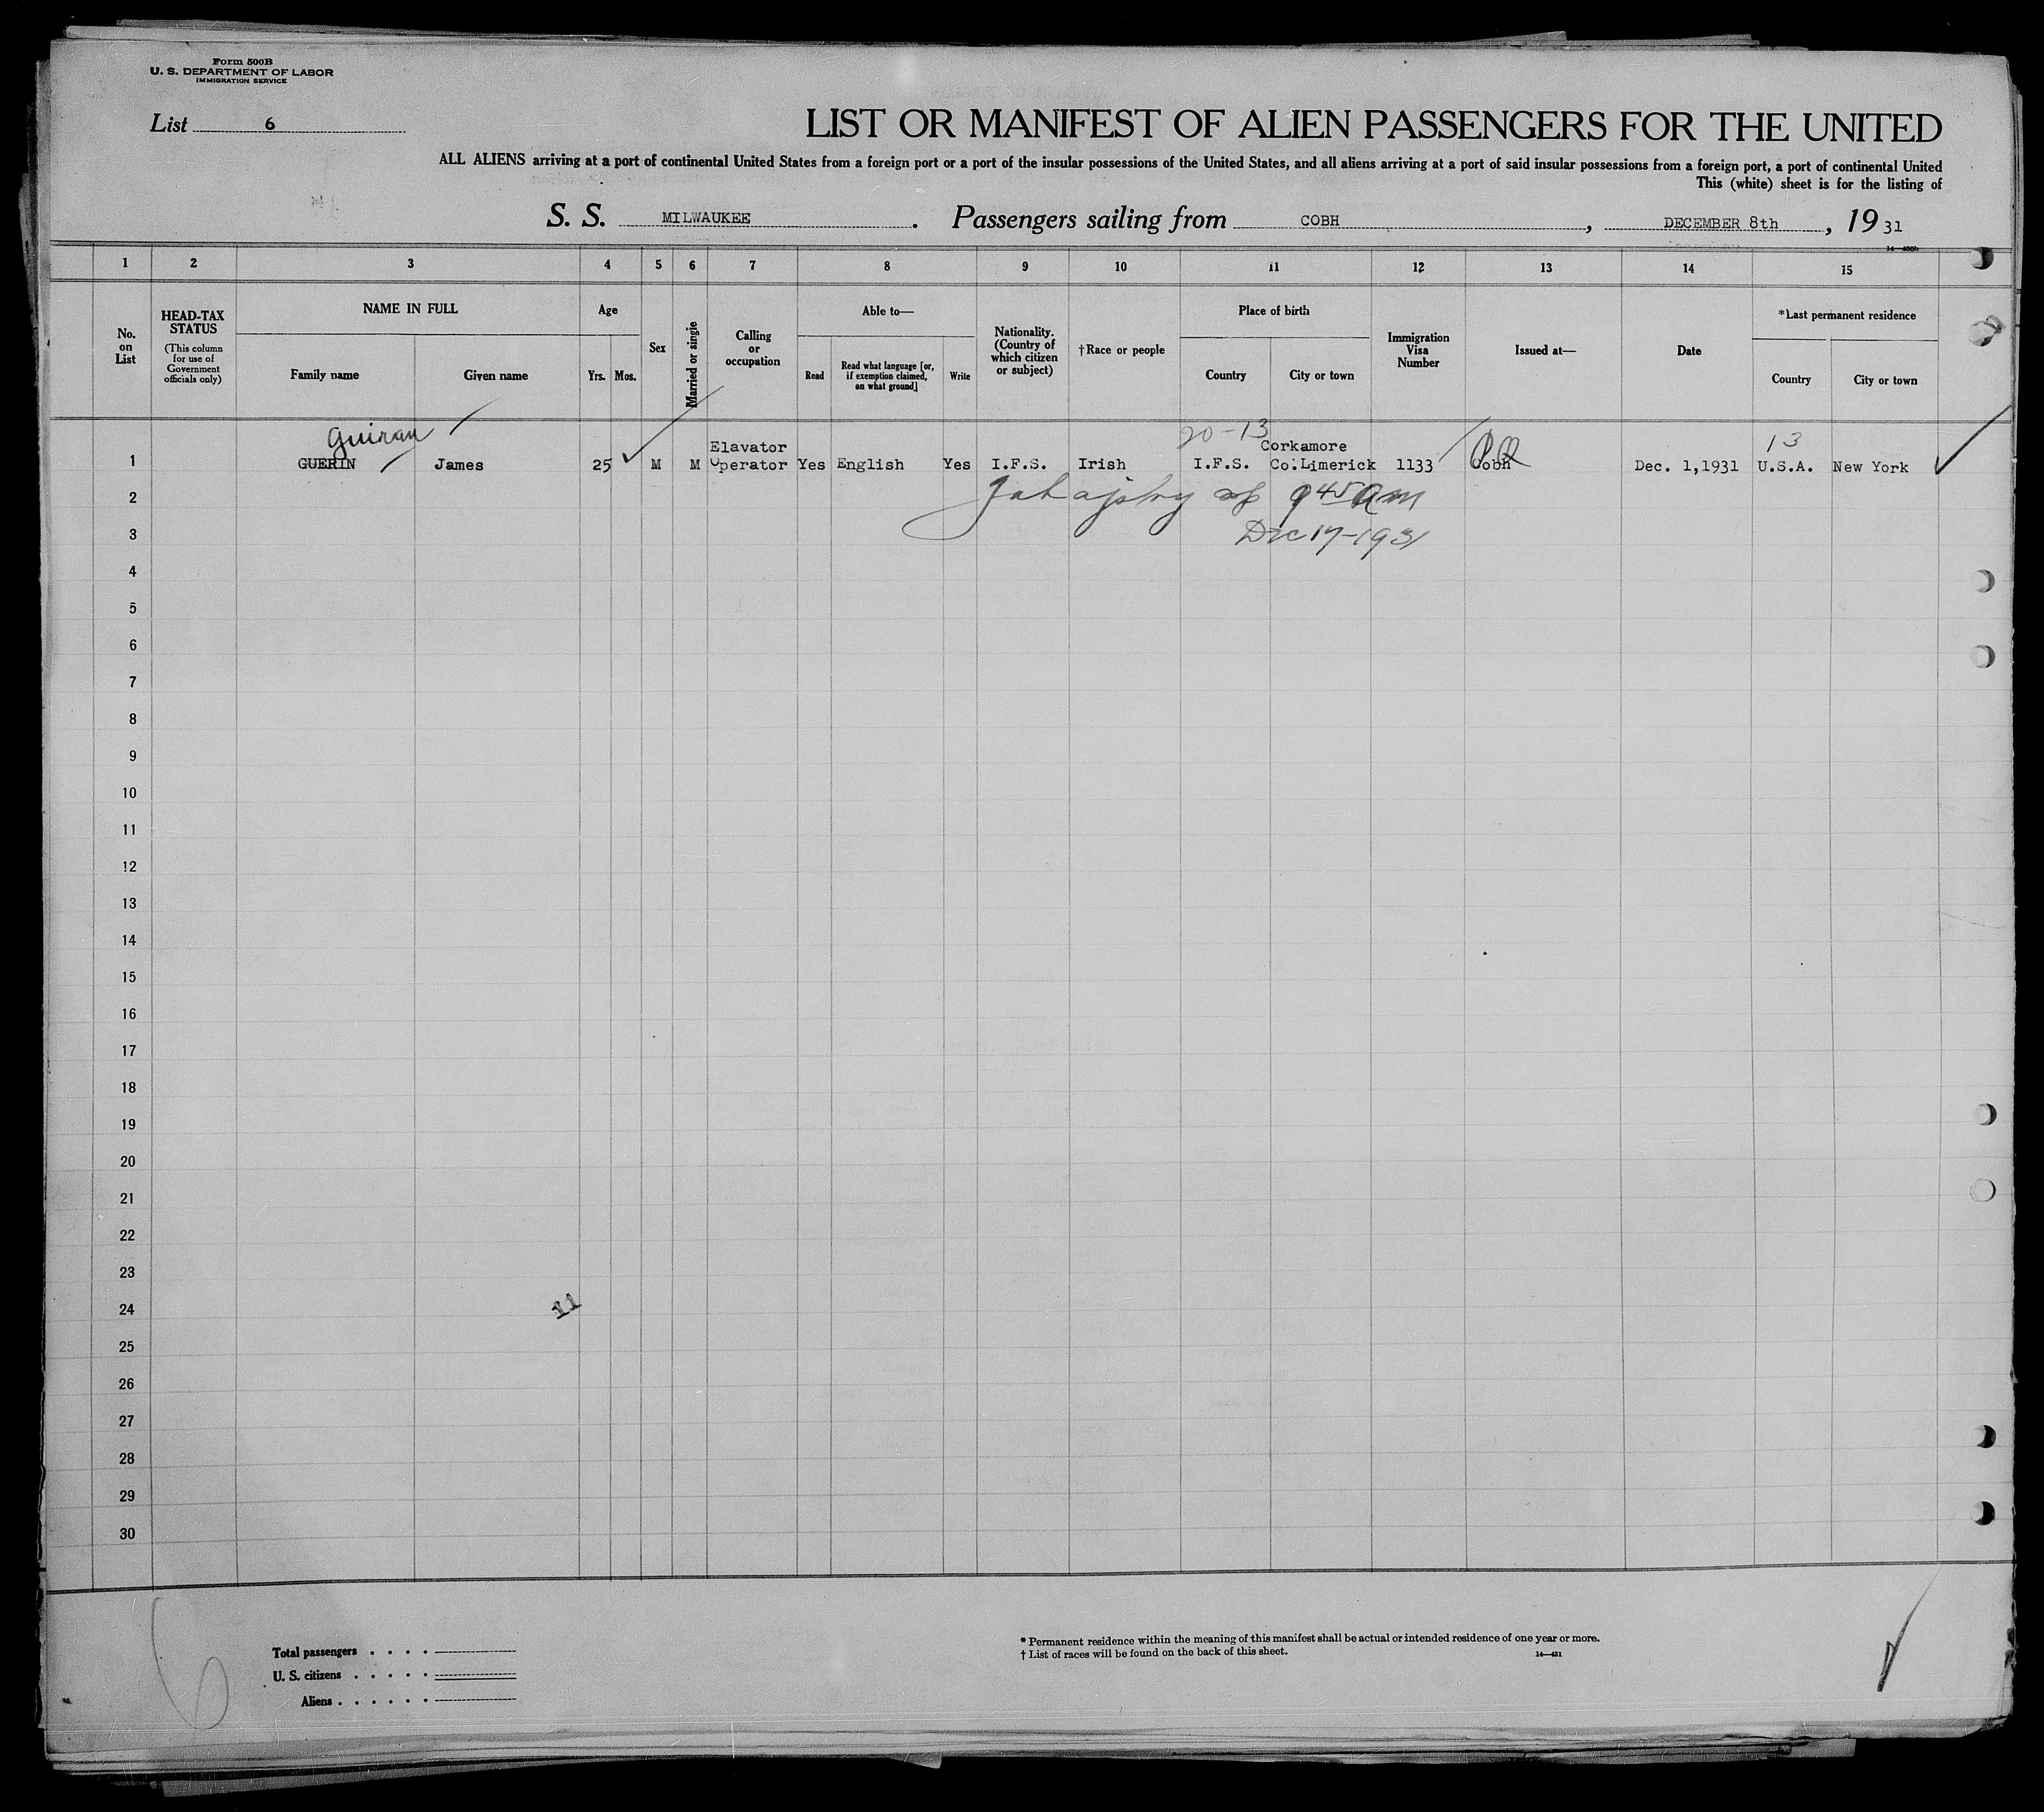 Form 500B
U. S. DEPARTMENT OF LABOR
IMMIGRATION SERVICE
List 6
LIST OR MANIFEST OF ALIEN PASSENGERS FOR THE UNITED
ALL ALIENS arriving at a port of continental United States from a foreign port or a port of the insular possessions of the United States, and all aliens arriving at a port of said insular possessions from a foreign port, a port of continental United
This (white) sheet is for the listing of
S. S. MILWAUKEE. Passengers sailing from COBH, DECEMBER 8th, 19 31
1 2 3 4 5 6 7 8 9 10 11 12 13 14 15
No. on List
HEAD-TAX STATUS
(This column for use of Government officials only)
NAME IN FULL
Family name Given name
Age
Yrs. Mos.
Sex
Married or single
Calling or occupation
Able to—
Read
Read what language [or, if exemption claimed, on what ground]
Write
Nationality. (Country of which citizen or subject)
†Race or people
Place of birth
Country City or town
Immigration Visa Number
Issued at—
Date
*Last permanent residence
Country City or town
Guiran 20-13 13
Elavator Corkamore
1 GUERIN James 25 M M Operator Yes English Yes I.F.S. Irish I.F.S. Co.Limerick 1133 Cobh Dec. 1,1931 U.S.A. New York
2 9 45 am
3 Dec 17-1931
4
5
6
7
8
9
10
11
12
13
14
15
16
17
18
19
20
21
22
23
24 11
25
26
27
28
29
30
Total passengers
U. S. citizens
Aliens
* Permanent residence within the meaning of this manifest shall be actual or intended residence of one year or more.
† List of races will be found on the back of this sheet.
14—431